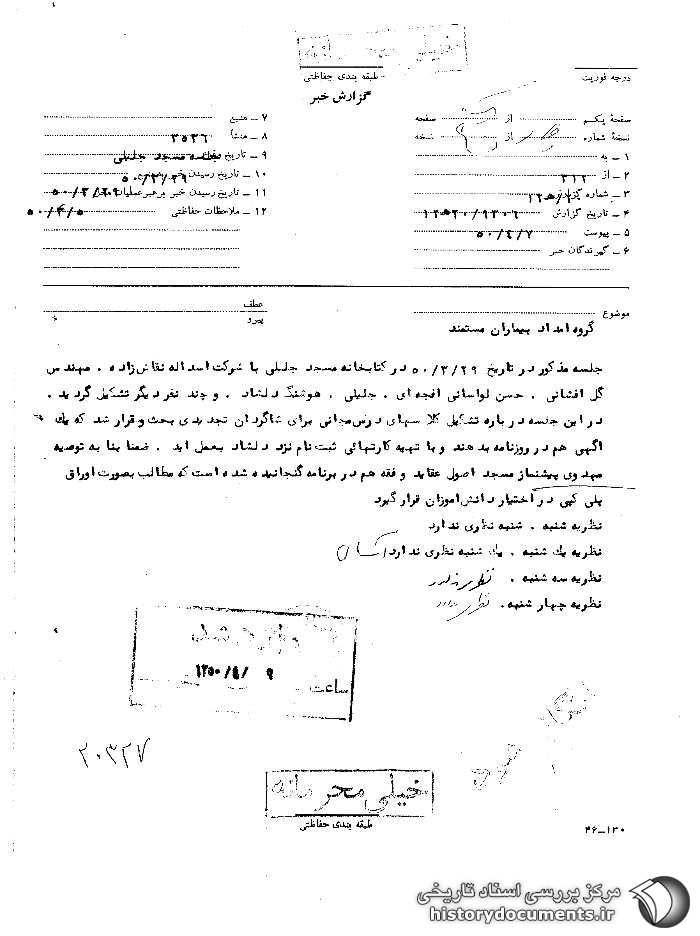 خیلی محرمانه
طبقه بندی حفاظتی
درجه فوریت
گزارش خبر
صفحه یکم از صفحه
نسخه شماره از نسخه
۱ ـ به
۲ ـ از ۳۱۲
۳ ـ شماره گزارش
۴ ـ تاریخ گزارش
۵ ـ پیوست ۵۰/۴/۲
۶ ـ گیرندگان خبر
۷ ـ منبع
۸ ـ منشأ ۳۵۳۶
۹ ـ تاریخ جلسه مسجد جلیلی
۱۰ ـ تاریخ رسیدن خبر ۵۰/۳/۲۹
۱۱ ـ تاریخ رسیدن خبر برهبرعملیات ۵۰/۳/۲۹
۱۲ ـ ملاحظات حفاظتی ۵۰/۴/۵
موضوع
عطف
پیرو
گروه امداد بیماران مستمند
جلسه مذکور در تاریخ ۵۰/۳/۲۹ در کتابخانه مسجد جلیلی با شرکت اسداله نقاش‌زاده ، مهندس
گل افشانی ، حسن لواسانی افجه ای ، جلیلی ، هوشنگ دلشاد ، و چند نفر دیگر تشکیل گردید .
در این جلسه درباره تشکیل کلاسهای درس مجانی برای شاگردان تجدیدی بحث و قرار شد که یک
اگهی هم در روزنامه بدهند و با تهیه کارتهائی ثبت نام نزد دلشاد بعمل اید . ضمنا بنا به توصیه
مهدوی پیشنماز مسجد اصول عقاید و فقه هم در برنامه گنجانیده شده است که مطالب بصورت اوراق
پلی کپی در اختیار دانش اموزان قرار گیرد
نظریه شنبه . شنبه نظری ندارد
نظریه یک شنبه . یک شنبه نظری ندارد
نظریه سه شنبه . نظری ندارد
نظریه چهار شنبه . نظری ندارد
وارد شد
۱۳۵۰/۴/ ۹
ساعت
۲۰۳۲۷
خیلی محرمانه
طبقه بندی حفاظتی
۴۶ـ۱۳۰
مرکز بررسی اسناد تاریخی
historydocuments.ir